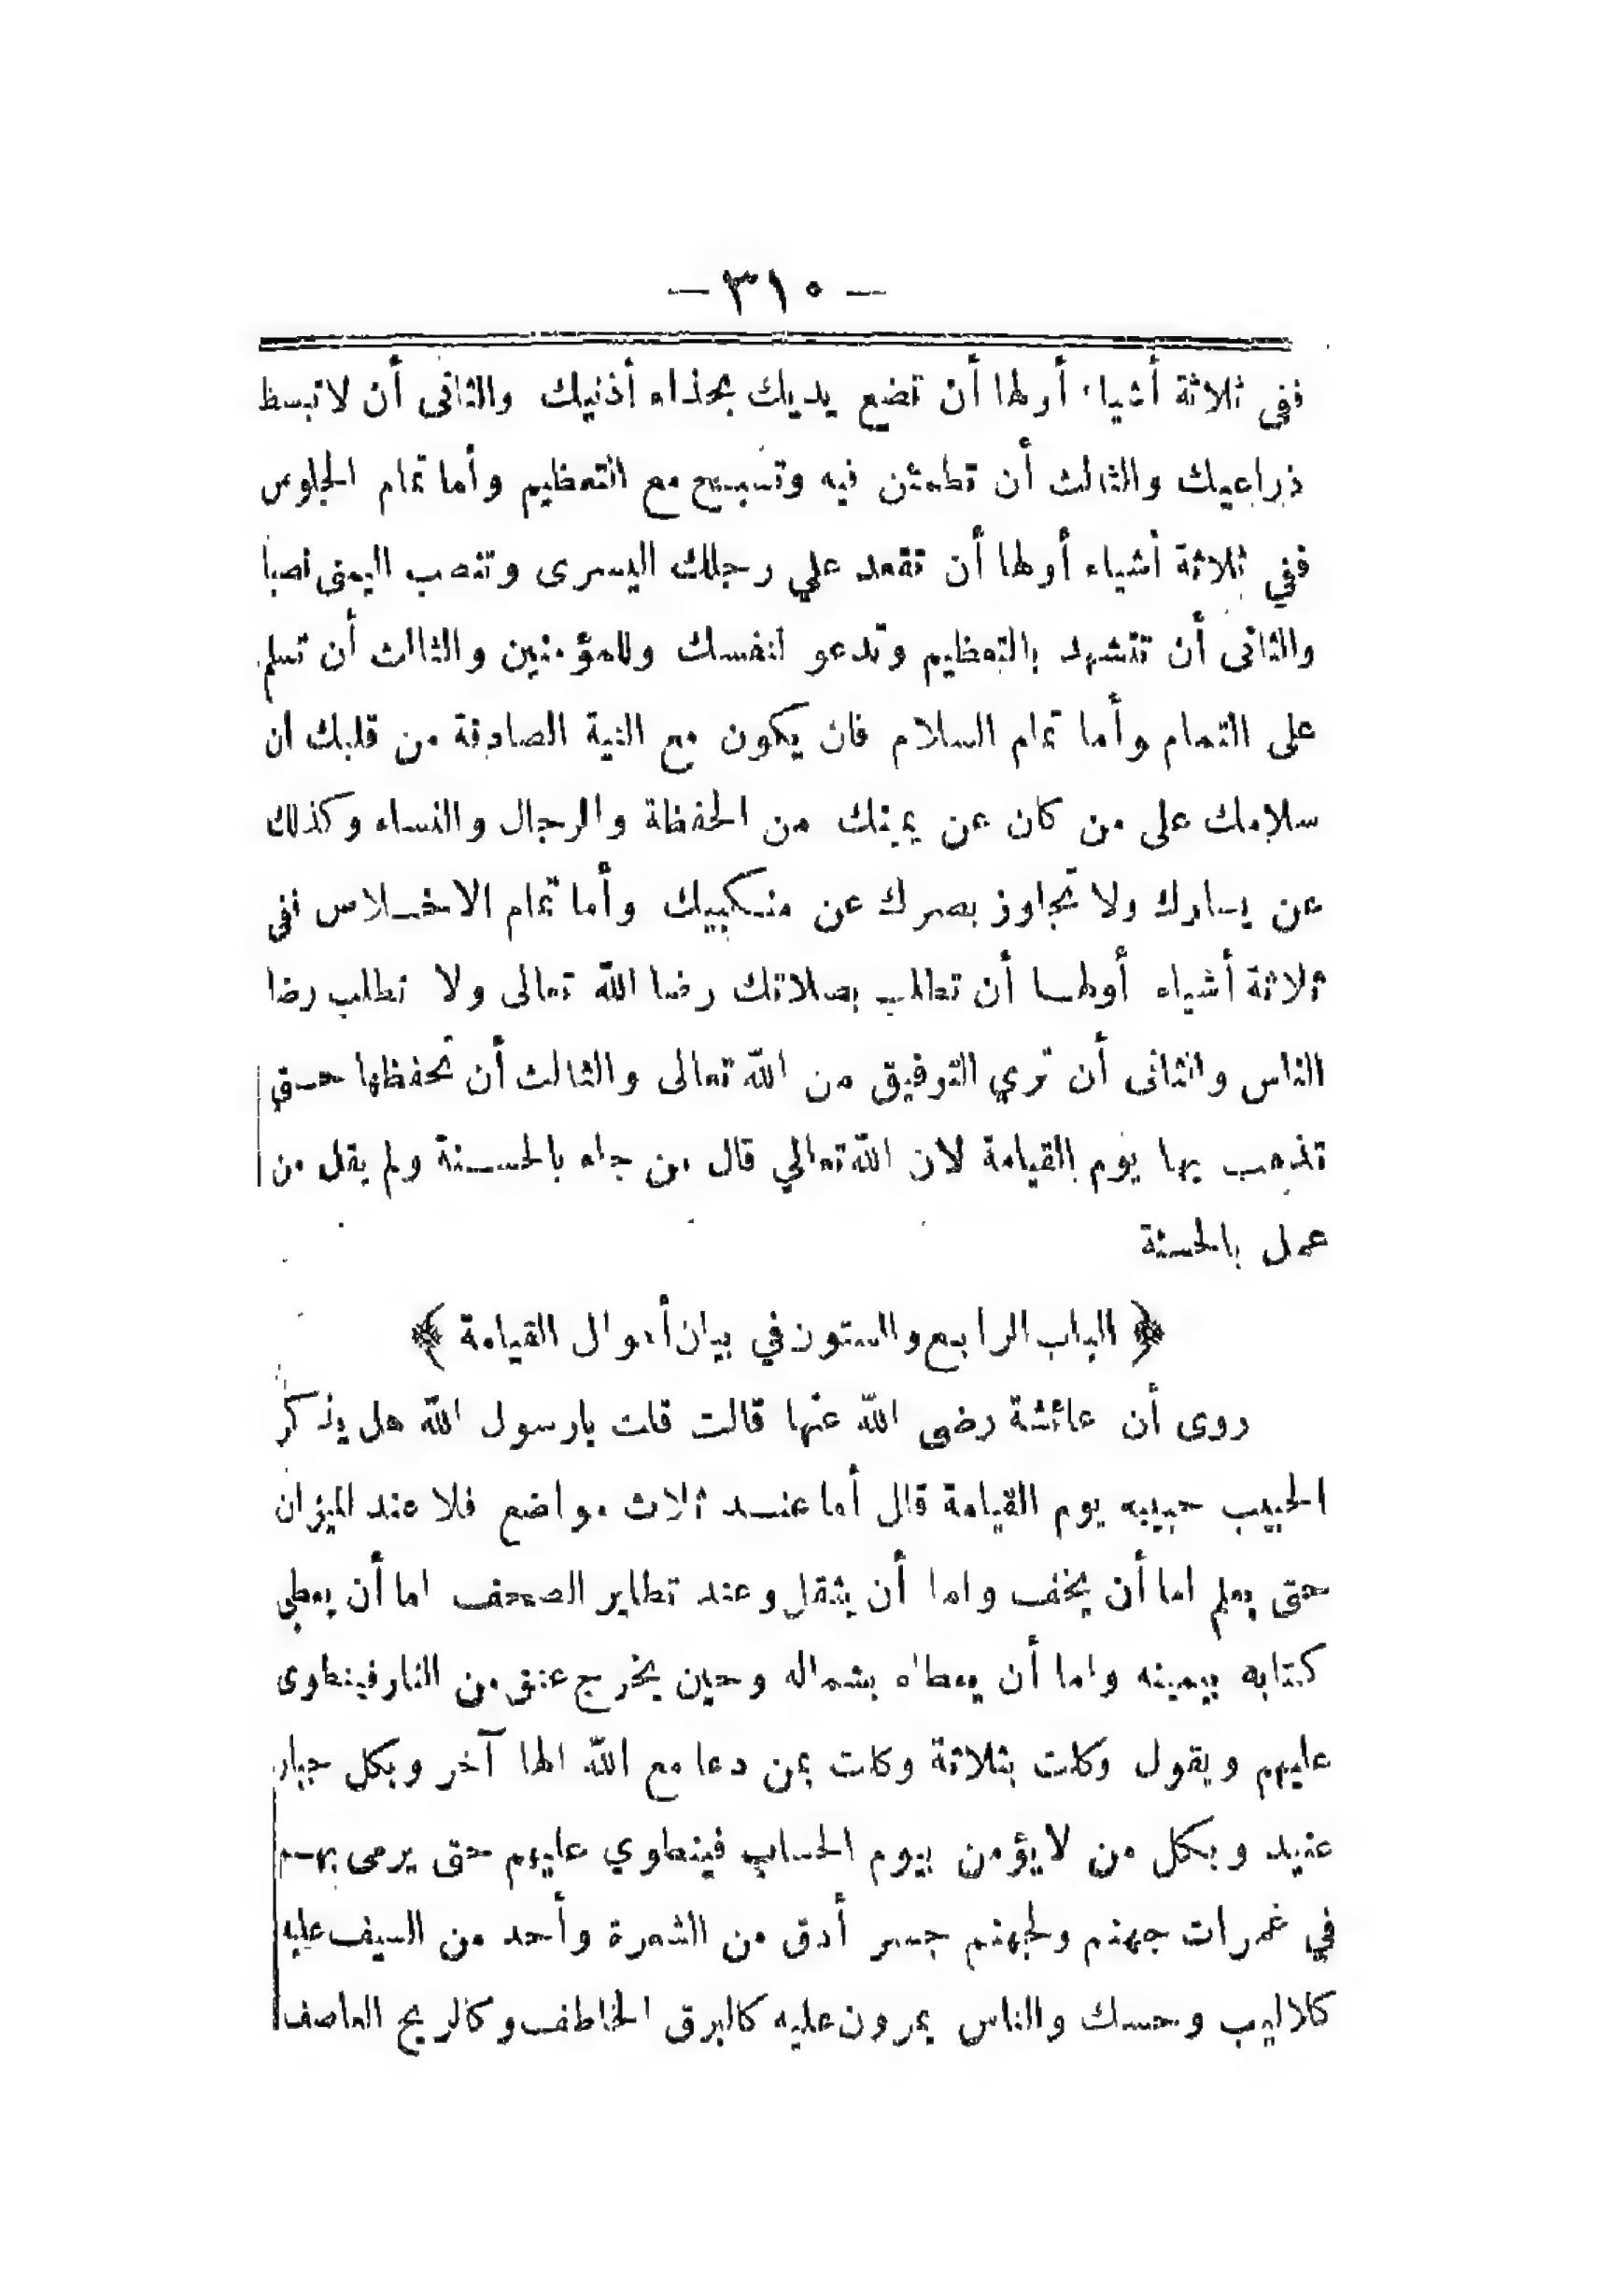 — ٣١٠ —
ففى ثلاثة أشياء أولها أن تضع يديك بحذاء أذنيك والثانى أن لا تبسط
ذراعيك والثالث أن تطمئن فيه وتسبيح مع التعظيم وأما تمام الجلوس
ففي ثلاثة أشياء أولها أن تقعد علي رجلك اليسرى وتنصب اليمنى نصبا
والثانى أن تتشهد بالتعظيم وتدعو لنفسك وللمؤمنين والثالث أن تسلم
على التمام وأما تمام السلام فان يكون مع النية الصادقة من قلبك ان
سلامك على من كان عن يمينك من الحفظة والرجال والنساء وكذلك
عن يسارك ولا تجاوز بصرك عن منكبيك وأما تمام الاخلاص ففى
ثلاثة أشياء أولها أن تطلب بصلاتك رضا الله تعالى ولا تطلب رضا
الناس والثانى أن تري التوفيق من الله تعالى والثالث أن تحفظها حتى
تذهب بها يوم القيامة لان الله تعالي قال من جاء بالحسنة ولم يقل من
عمل بالحسنة
﴿ الباب الرابع والستون في بيان أهوال القيامة ﴾
روى أن عائشة رضى الله عنها قالت قلت يارسول الله هل يذكر
الحبيب حبيبه يوم القيامة قال أما عند ثلاث مواضع فلا عند الميزان
حتى يعلم اما أن يخف واما أن يثقل وعند تطاير الصحف اما أن يعطي
كتابه بيمينه واما أن يعطاه بشماله وحين يخرج عنق من النار فينطوى
عليهم ويقول وكلت بثلاثة وكلت بمن دعا مع الله الها آخر وبكل جبار
عنيد وبكل من لايؤمن بيوم الحساب فينطوي عليهم حتى يرمى بهم
في غمرات جهنم ولجهنم جسر أدق من الشعرة وأحد من السيف عليه
كلاليب وحسك والناس يمرون عليه كالبرق الخاطف وكالريح العاصف